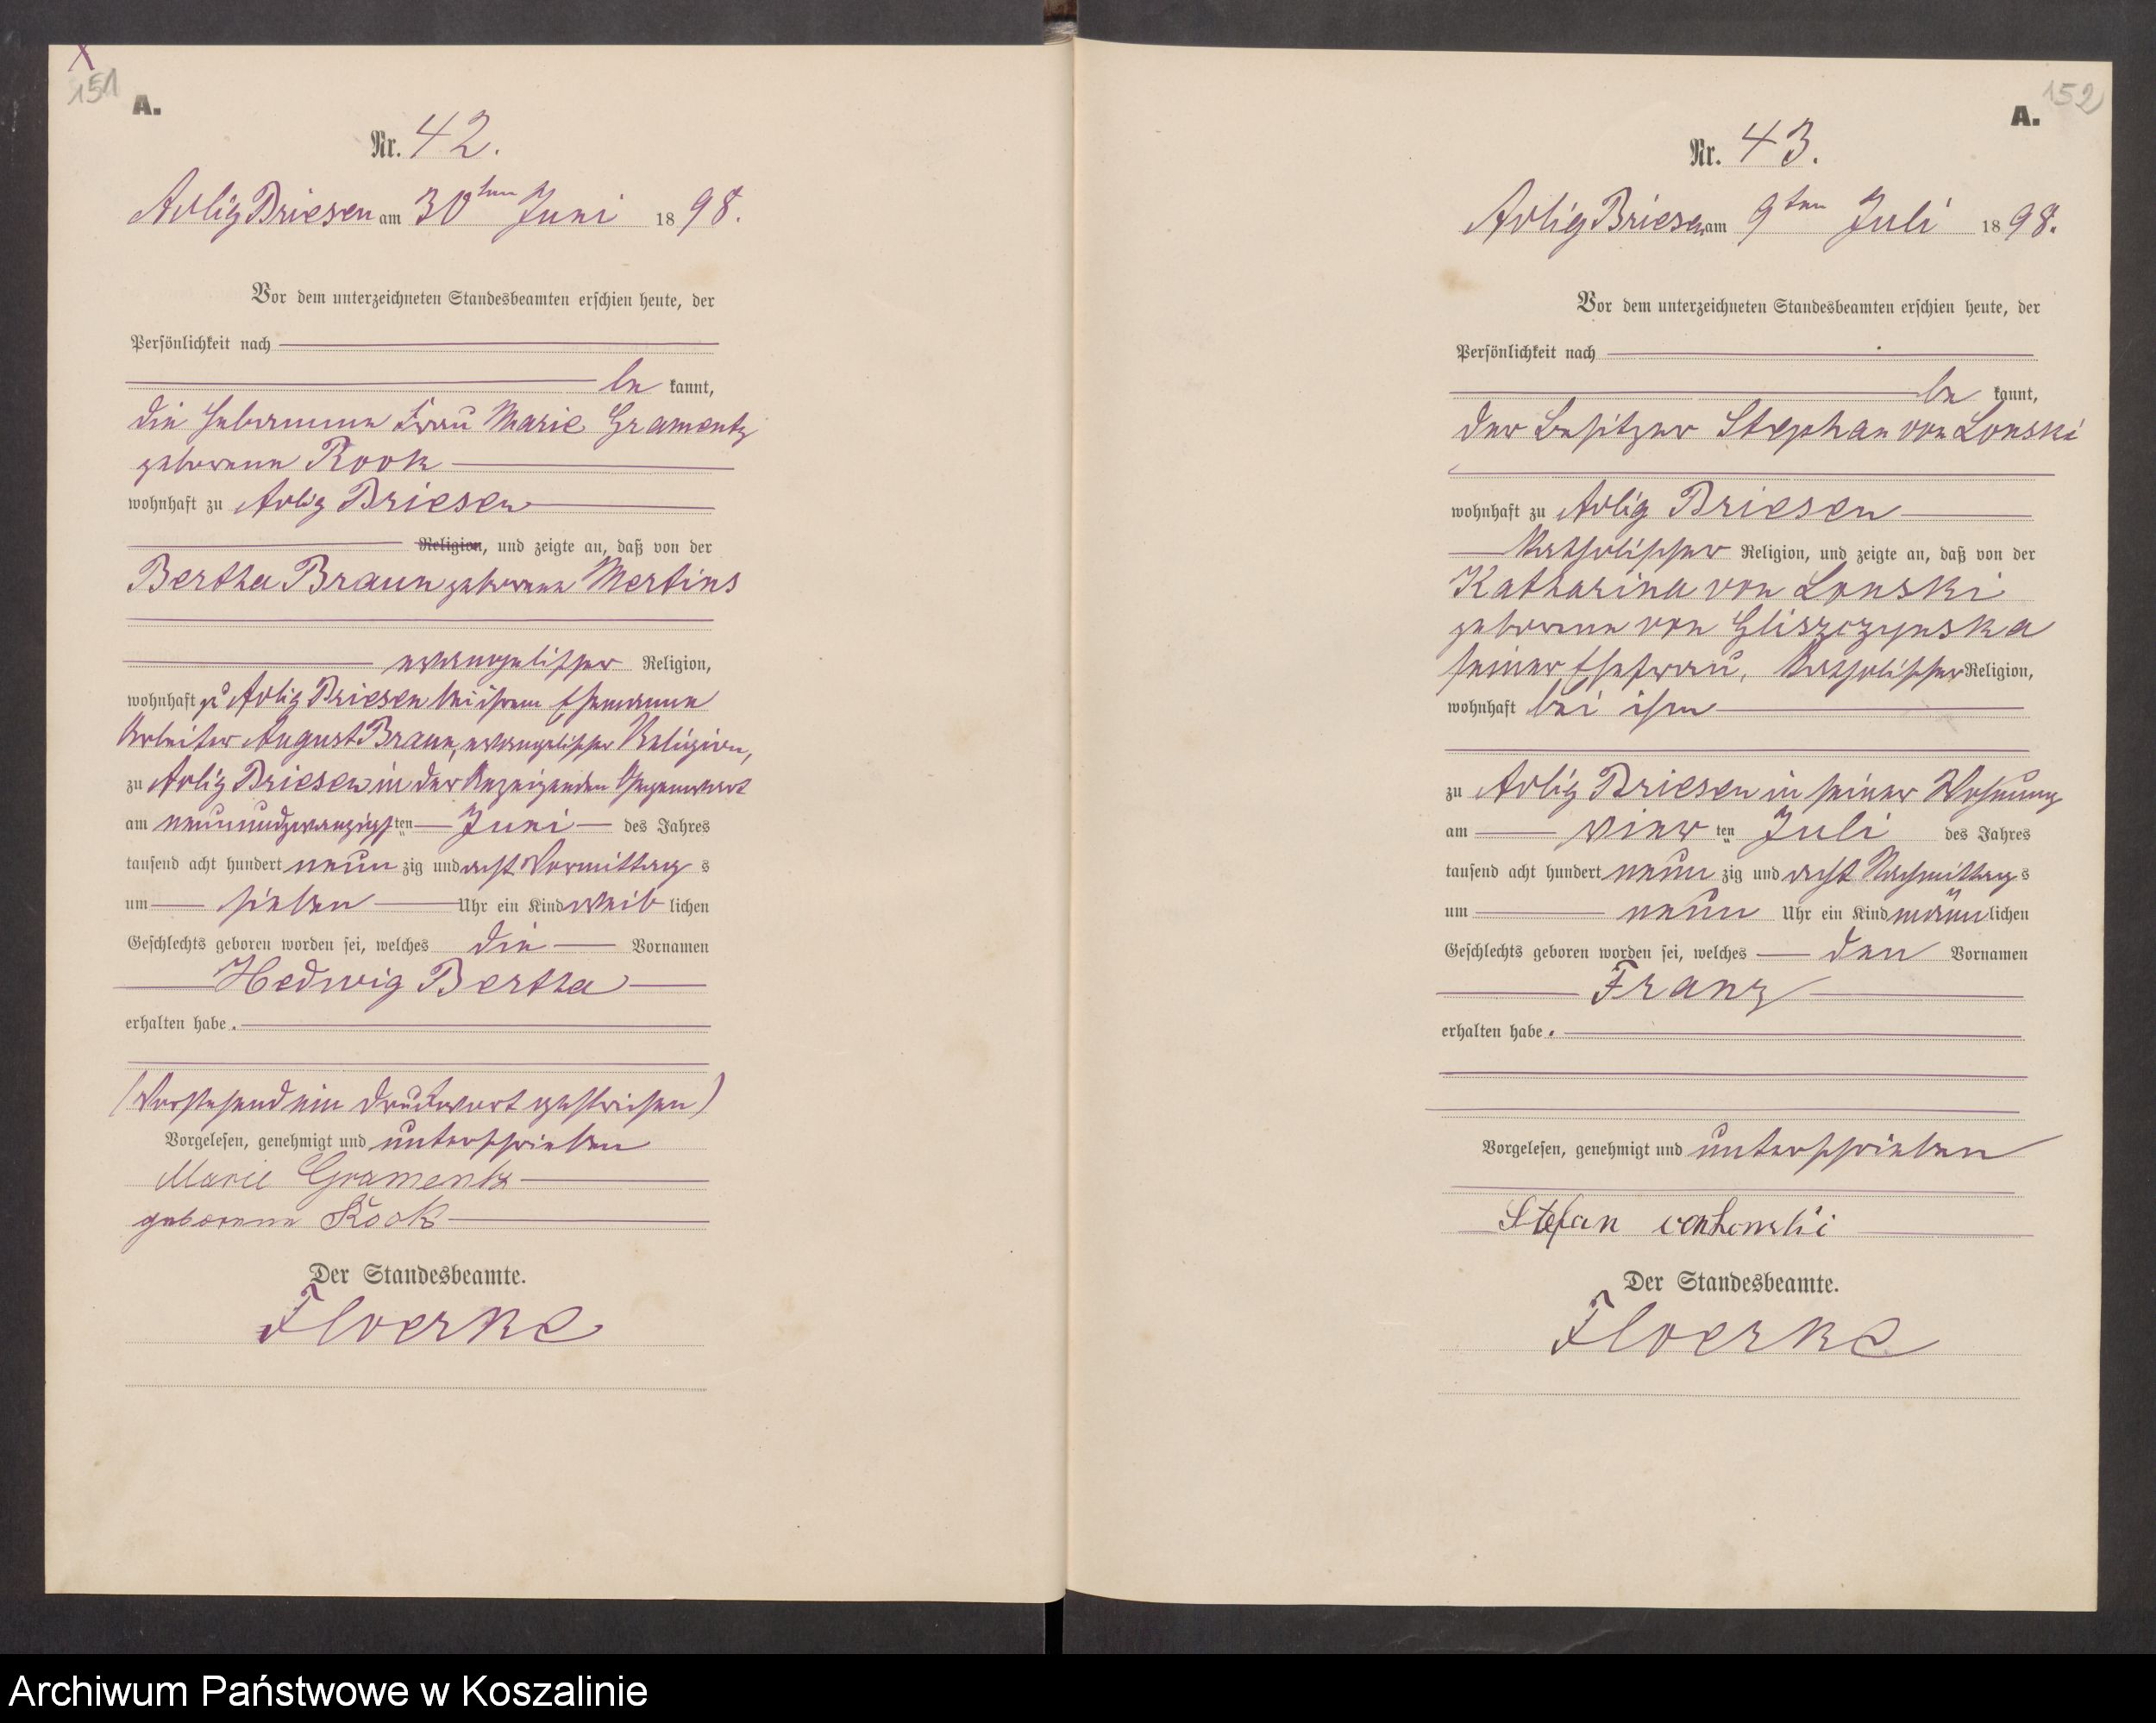 X
151
A.
Nr. 42.
Adlig Briesen am 30ten Juni 1898.
Vor dem unterzeichneten Standesbeamten erschien heute, der
Persönlichkeit nach
be kannt,
die Hebamme Frau Marie Gramentz
geborene Kook
wohnhaft zu Adlig Briesen
Religion, und zeigte an, daß von der
Bertha Braun geborene Mertins
evangelischer Religion,
wohnhaft zu Adlig Briesen bei ihrem Ehemanne
Arbeiter August Braun, evangelischer Religion,
zu Adlig Briesen in der Anzeigenden Gegenwart
am neunundzwanzigsten Juni des Jahres
tausend acht hundert neun zig und acht Vormittag s
um sieben Uhr ein Kind weib lichen
Geschlechts geboren worden sei, welches die Vornamen
Hedwig Bertha
erhalten habe.
(Vorstehend ein Druckwort gestrichen)
Vorgelesen, genehmigt und unterschrieben
Marie Gramentz
geborenne Kook
Der Standesbeamte.
Floerke
152
A.
Nr. 43.
Adlig Briesen am 9ten Juli 1898.
Vor dem unterzeichneten Standesbeamten erschien heute, der
Persönlichkeit nach
be kannt,
der Besitzer Stephan von Lonski
wohnhaft zu Adlig Briesen
katholischer Religion, und zeigte an, daß von der
Katharina von Lonski
geborene von Gliszczynska
seiner Ehefrau, katholischer Religion,
wohnhaft bei ihm
zu Adlig Briesen in seiner Wohnung
am vier ten Juli des Jahres
tausend acht hundert neun zig und acht Nachmittag s
um neun Uhr ein Kind männ lichen
Geschlechts geboren worden sei, welches den Vornamen
Franz
erhalten habe.
Vorgelesen, genehmigt und unterschrieben
Stefan von Lonski
Der Standesbeamte.
Floerke
Archiwum Państwowe w Koszalinie